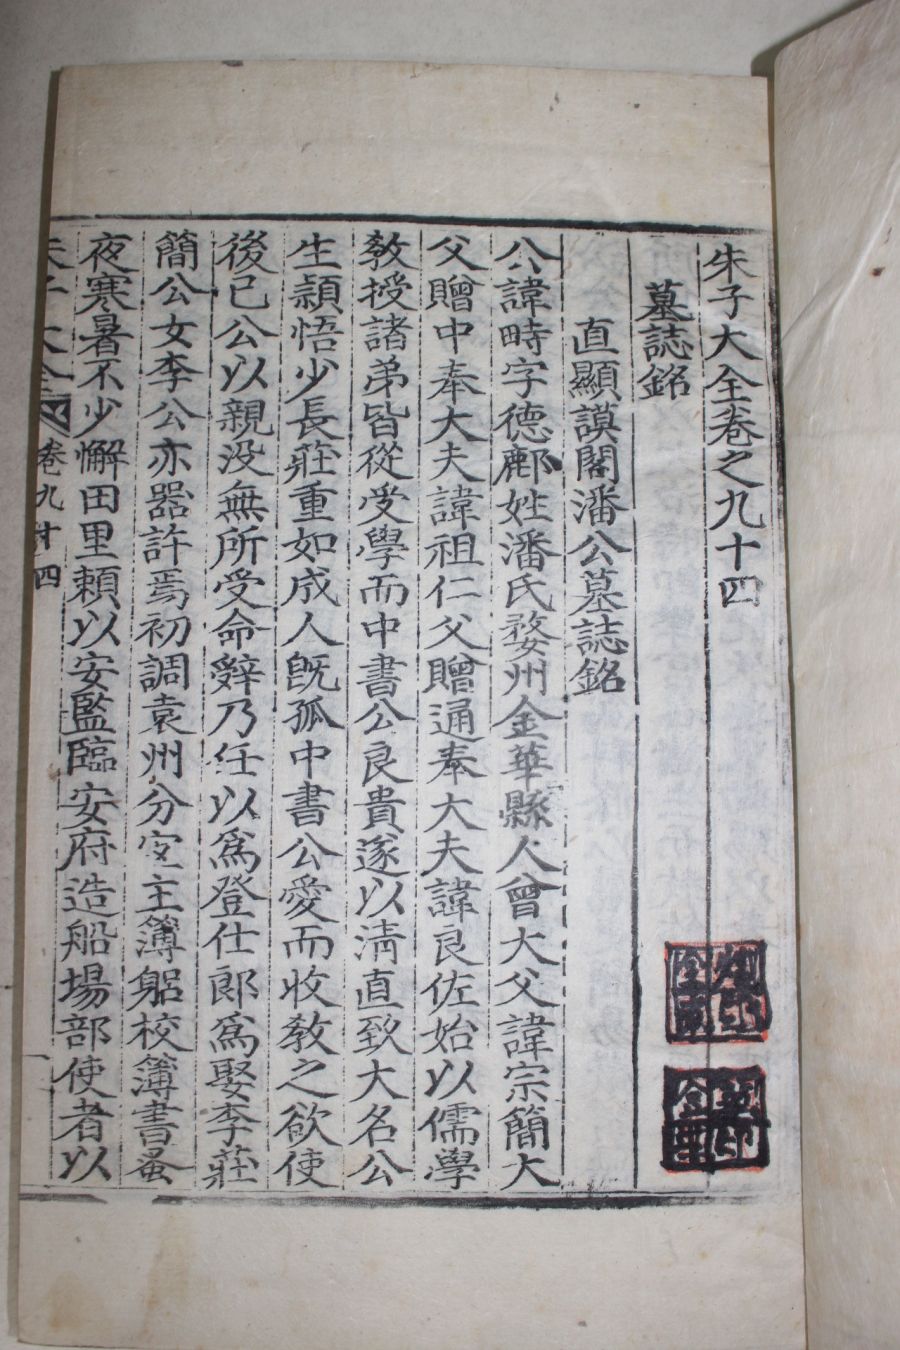 朱子大全卷之九十四
墓誌銘
直顯謨閣潘公墓誌銘
公諱畤字德鄜姓潘氏婺州金華縣人曾大父諱宗簡大
父贈中奉大夫諱祖仁父贈通奉大夫諱良佐始以儒學
教授諸弟皆從受學而中書公良貴遂以清直致大名公
生穎悟少長莊重如成人既孤中書公愛而收教之欲使
後已公以親没無所受命辭乃任以爲登仕郎爲娶李莊
簡公女李公亦器許焉初調袁州分宜主簿躬校簿書蚤
夜寒暑不少懈田里賴以安監臨安府造船場部使者以
朱子大全 卷九十四